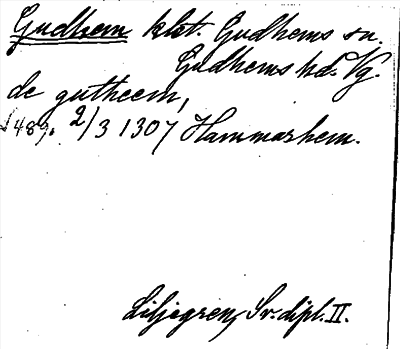 Gudhem klst. Gudhems sn.
Gudhems hd. Vg.
de gutheem,
1489. 2/3 1307 Hammarhem.
Liljegren, Sv. dipl. II.